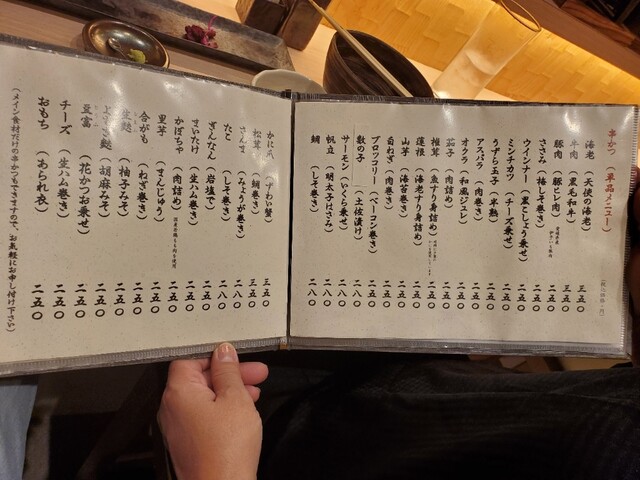 串かつ 〈単品メニュー〉
海老 (天使の海老) 三五〇
牛肉 (黒毛和牛) 三五〇
豚肉 (豚ヒレ肉) 二五〇
ささみ (梅しそ巻き) 二五〇
ウインナー (黒こしょう乗せ) 二五〇
ミンチカツ (チーズ乗せ) 二五〇
うずら玉子 (半熟) 二五〇
アスパラ (肉巻き) 二五〇
オクラ (和風ジュレ) 二五〇
茄子 (肉詰め) 二五〇
椎茸 (魚すり身詰め) 二五〇
蓮根 (海老すり身詰め) 二五〇
山芋 (海苔巻き) 二五〇
白ねぎ (肉巻き) 二五〇
ブロッコリー (ベーコン巻き) 二五〇
数の子 (土佐漬け) 二八〇
サーモン (いくら乗せ) 二八〇
帆立 (明太子はさみ) 二八〇
鯛 (しそ巻き) 二八〇
かに爪 (ずわい蟹) 三五〇
松茸 (鯛巻き) 三五〇
さんま (みょうが巻き) 二八〇
たこ (しそ巻き) 二八〇
ぎんなん (岩塩で) 二五〇
まいたけ (生ハム巻き) 二五〇
かぼちゃ (肉詰め) 二五〇
里芋 (まんじゅう) 二五〇
合がも (ねぎ巻き) 二五〇
生麩 (柚子みそ) 二五〇
よもぎ麩 (胡麻みそ) 二五〇
豆富 (花かつお乗せ) 二五〇
チーズ (生ハム巻き) 二五〇
おもち (あられ衣) 二五〇
(メイン食材だけの串かつもできますので、お気軽にお申し付け下さい)